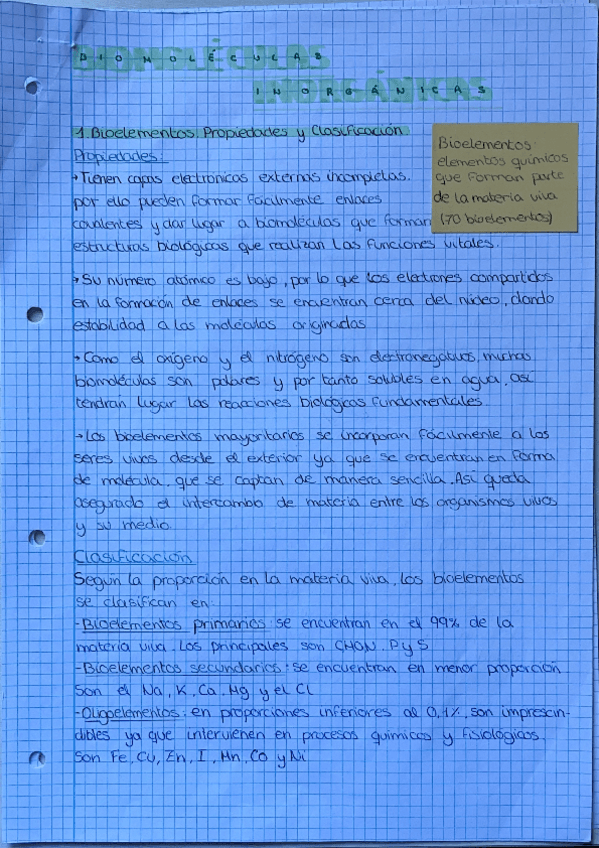 BIOMOLÉCULAS
INORGÁNICAS
1. Bioelementos. Propiedades y Clasificación
Bioelementos:
elementos químicos
que forman parte
de la materia viva
(70 bioelementos)
Propiedades:
→Tienen capas electrónicas externas incompletas.
por ello pueden formar fácilmente enlaces
covalentes y dar lugar a biomoléculas que forman
estructuras biológicas que realizan las funciones vitales.
→Su número atómico es bajo, por lo que los electrones compartidos
en la formación de enlaces se encuentran cerca del núcleo, dando
estabilidad a las moléculas originadas
→Como el oxígeno y el nitrógeno son electronegativos, muchas
biomoléculas son polares y por tanto solubles en agua, así
tendrán lugar las reacciones biológicas fundamentales.
→Los bioelementos mayoritarios se incorporan fácilmente a los
seres vivos desde el exterior ya que se encuentran en forma
de molécula, que se captan de manera sencilla. Así queda
asegurado el intercambio de materia entre los organismos vivos
y su medio.
Clasificación
Según la proporción en la materia viva, los bioelementos
se clasifican en:
-Bioelementos primarios: se encuentran en el 99% de la
materia viva. Los principales son CHON, P y S
-Bioelementos secundarios: se encuentran en menor proporción
Son el Na, K, Ca, Mg y el Cl
-Oligoelementos: en proporciones inferiores al 0,1%, son imprescin-
dibles ya que intervienen en procesos químicos y fisiológicos.
Son Fe, Cu, Zn, I, Mn, Co y Ni